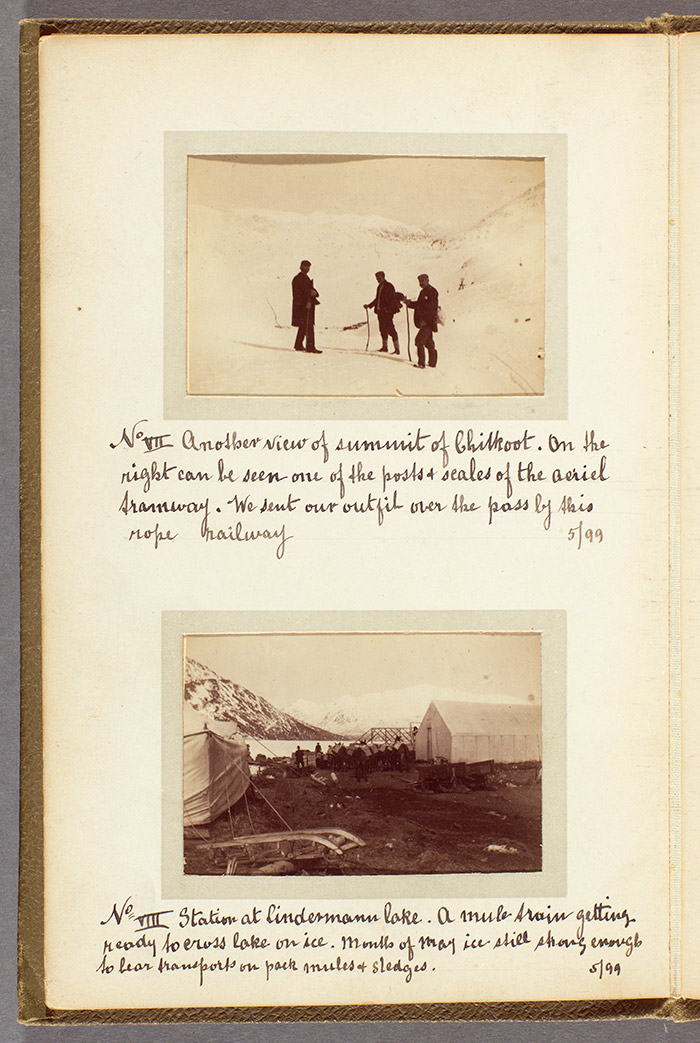 No VII Another view of summit of Chilkoot. On the
right can be seen one of the posts & scales of the aeriel
tramway. We sent our outfit over the pass by this
rope railway 5/99
No VIII Station at Lindermann lake. A mule train getting
ready to cross lake on ice. Month of may ice still strong enough
to bear transports on pack mules & sledges. 5/99